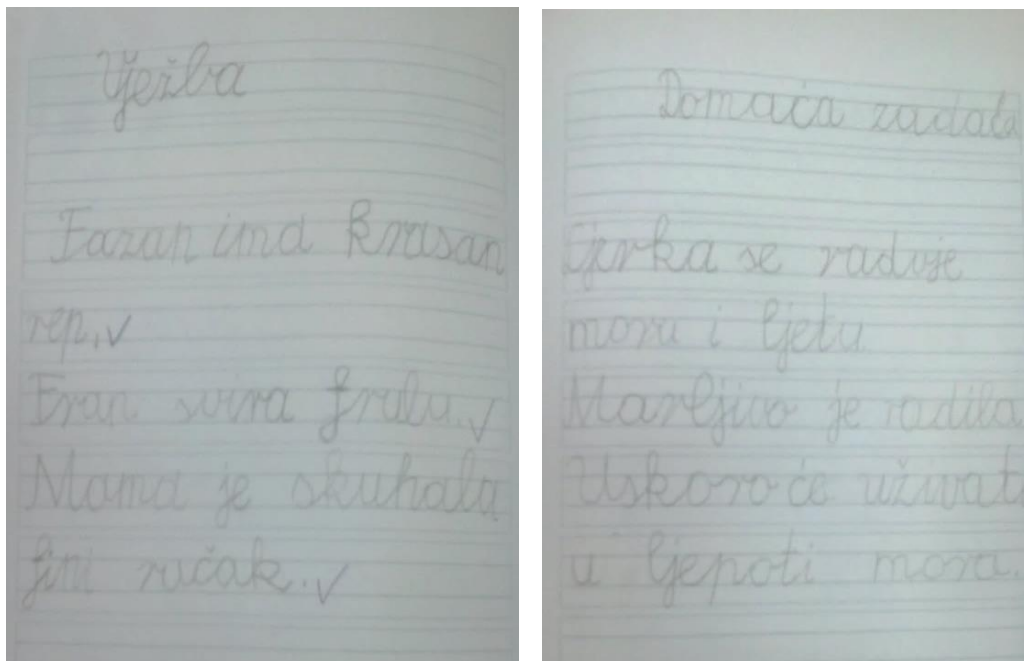 Vježba
Fazan ima krasan
rep.
Fran svira frulu.
Mama je skuhala
fini ručak.
Domaća zadaća
se raduje
moru i ljetu
Marljivo je radila
Uskoro će uživati
u ljepoti mora.